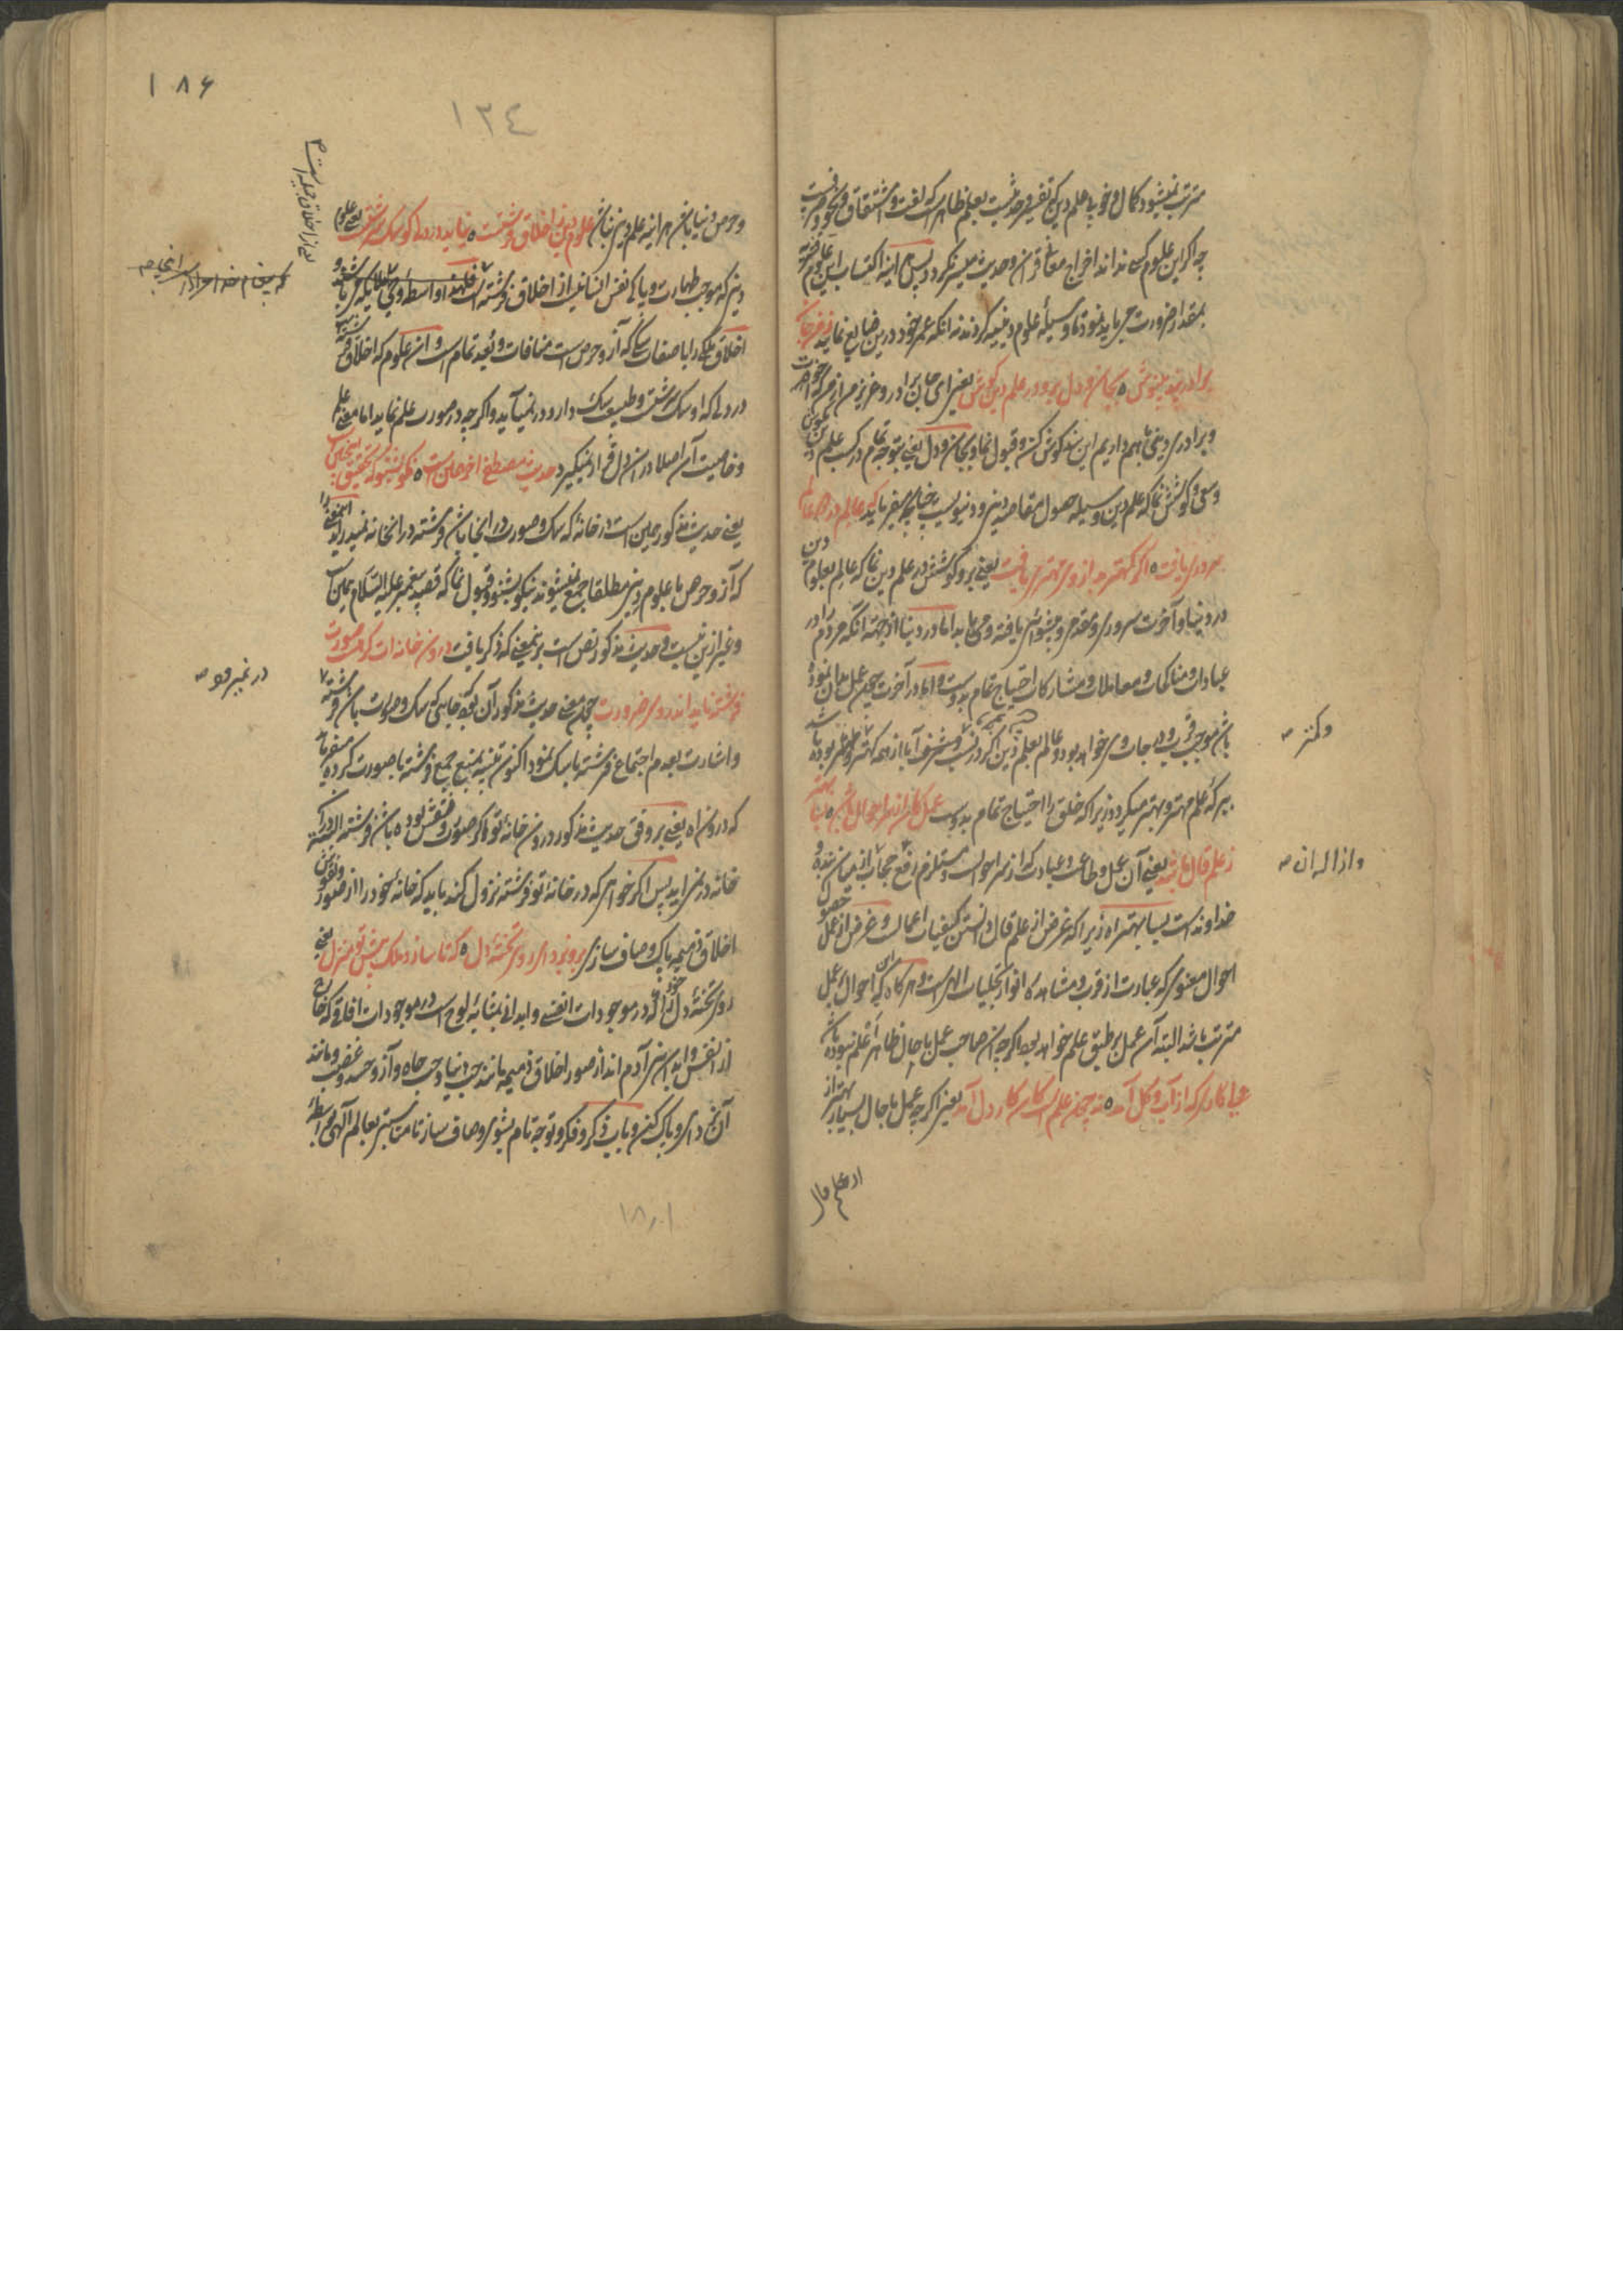 مترتب نمیشود و کمال و خوبی علم دین که تفسیر و حدیث است بعلم ظاهر است که لغت و اشتقاق و نحو و صرفست
چه اگر این علوم کسی نداند اخراج معانی قرآن و حدیث میسر نگردد پس هر آینه اکتساب این علوم
بمقدار ضرورت می باید نمود تا وسیله علوم دینیه گردند نه آنکه عمر خود درین ضایع نماید
برادر پند بنیوش ٥ بجان و دل برو در علم دین کوش یعنی ای جان برادر و عزیز من
و برادری دینی باهم داریم این پند گوش کن و قبول نما و بجان و دل یعنی بتوجه تمام در کسب علم دین
و سعی و کوشش نما که علم دین وسیله حصول مقاصد دینی و دنیویست چنانچه میفرماید که عالم در دو عالم
سروری یافت ٥ اگر کهتر بد از وی مهتری یافت یعنی برو کوشش در علم دین نما که عالم بعلوم دین
در دنیا و آخرت سروری و مقدمی و پیشوائی یافته و می یابد اما در دنیا از جهت آنکه مردم را در
عبادات و مناکحات و معاملات و مشارکات احتیاج تمام بدوست و اما در آخرت چون عمل بآن نموده
باشد موجب قرب و درجات وی خواهد بود و عالم بعلم دین اگر در نسب و شرف آبا از همه کهتر و کمتر بوده باشد
ببرکه علم مهتر و بهتر میگردد زیرا که خلق را احتیاج تمام بدوست عمل کان از سر احوال باشد ٥ بسی بهتر
ز علم قال باشد یعنی آن عمل و طاعت و عبادت که از سر احوالست و مستلزم رفع حجاب از میان بنده و
خداوند است بسیار بهتر است زیرا که غرض از علم قال دانستن کیفیات اعمالست و غرض از عمل حصول
احوال معنوی که عبارت از قرب و مشاهده انوار تجلیات الهی است و هرگاه که این احوال بر عمل
مترتب باشد البته آن عمل بر طبق علم خواهد بود اگر چه آن صاحب عمل با حال ظاهراً اعلم نبوده باشد
ولی کاری که از آب و گل آمد ٥ نه چون علم است کان کار دل آمد یعنی اگر چه عمل با حال بسیار بهتر از
از علم قال
وکمتر صح
و از اله آن صح
١٨۶
١٣٤
و حرص دنیا باشد هر آینه علم دین نباشد علوم دین ز اخلاق فرشتست ٥ نیاید در دلی کو سگ سرشتست یعنی علوم
دینی که موجب طهارت و پاکی نفس انسانیست از اخلاق فرشته است
اخلاق ملکی را با صفات سگی که آز و حرص است منافات و بعد تمام است و آن علوم که اخلاق فرشته است
در دلی که او سگ سرشت و طبیعت سگ دارد در نمی آید و اگر چه در صورت علم نماید اما معنی علم
و خاصیت آن اصلا در آن دل قرار نمیگیرد حدیث مصطفی آخر همین است ٥ نکو بشنو که تحقیق چنین است
یعنی حدیث مذکور همین است در خانه که سگ و صورت در آنجا باشد فرشته در آنخانه نمیدرآید اینمعنی را
که آز و حرص با علوم دینی مطلقا جمع نمیشوند نیکو بشنو و قبول نما که قصد پیغمبر علیه السلام همین است
و غیر ازین نیست و حدیث مذکور نص است بر معنی که ذکر یافت درون خانه ات گر هست صورت
فرشته ناید اندر وی ضرورت چون معنی حدیث مذکور آن بود که جایی که سگ و صورت باشد فرشته
و اشارت بعدم اجتماع فرشته با سگ نمود اکنون تنبیه بمنع جمع فرشته با صورت کرده میفرماید
که درون آه یعنی بر وفق حدیث مذکور درون خانه تو اگر صورت و نقش بوده باشد فرشته البته در آن
خانه در نمی آید پس اگر خواهی که در خانه تو فرشته نزول کند باید که خانه خود را از صور و نقوش
اخلاق ذمیمه پاک و صاف سازی برو بزدای روی تخته دل ٥ که تا سازد ملک پیش تو منزل یعنی
روی تخته دل خود را که در موجودات انفسی و ابدانی بمثابه لوح است در موجودات آفاقی که خارج
از انفس و ابدان بنی آدم اند از صور اخلاق ذمیمه مانند حب دنیا و حب جاه و آز و حسد و غضب و مانند
آن بزدای و پاک کن و بآب ذکر و فکر و توجه تام بشوی و صاف ساز تا مناسبتی بعالم الهی بواسطه
در نمی رود صح
١٨١